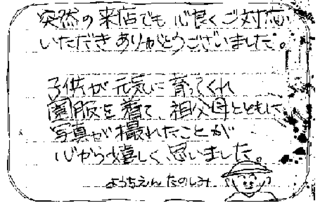 突然の来店でも心良くご対応
いただきありがとうございました。
子供が元気に育ってくれ
園服を着て、祖父母とともに
写真が撮れたことが
心から嬉しく思いました。
ようちえんたのしみ